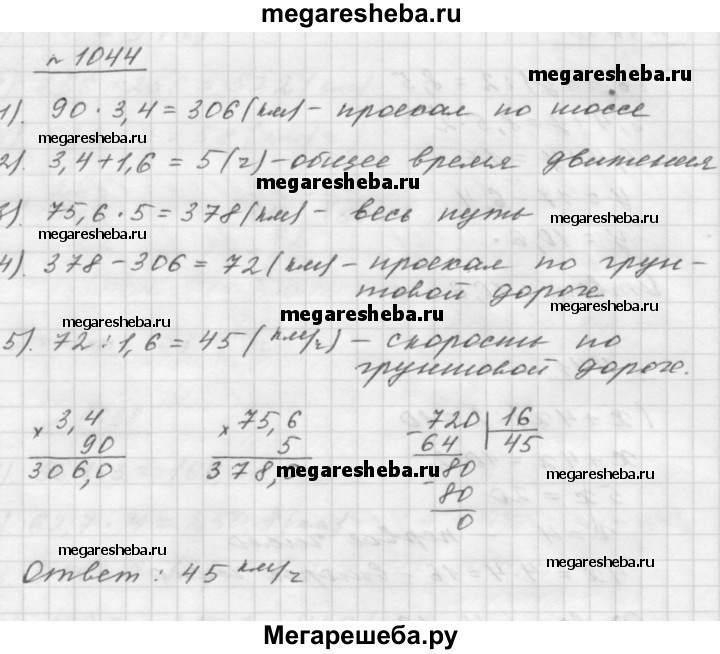 megaresheba.ru
№ 1044
megaresheba.ru
1). 90 · 3,4 = 306 (км) - проехал по шоссе
megaresheba.ru
2). 3,4 + 1,6 = 5 (ч) - общее время движения
megaresheba.ru
3). 75,6 · 5 = 378 (км) - весь путь
megaresheba.ru
megaresheba.ru
4). 378 - 306 = 72 (км) - проехал по грун-
товой дороге
megaresheba.ru
megaresheba.ru
5). 72 : 1,6 = 45 (км/ч) - скорость по
грунтовой дороге.
× 3,4 × 75,6 - 720 | 16
90 5 64 45
306,0 378,0 - 80
megaresheba.ru megaresheba.ru
80
0
megaresheba.ru
Ответ: 45 км/ч
megaresheba.ru
Мегарешеба.ру